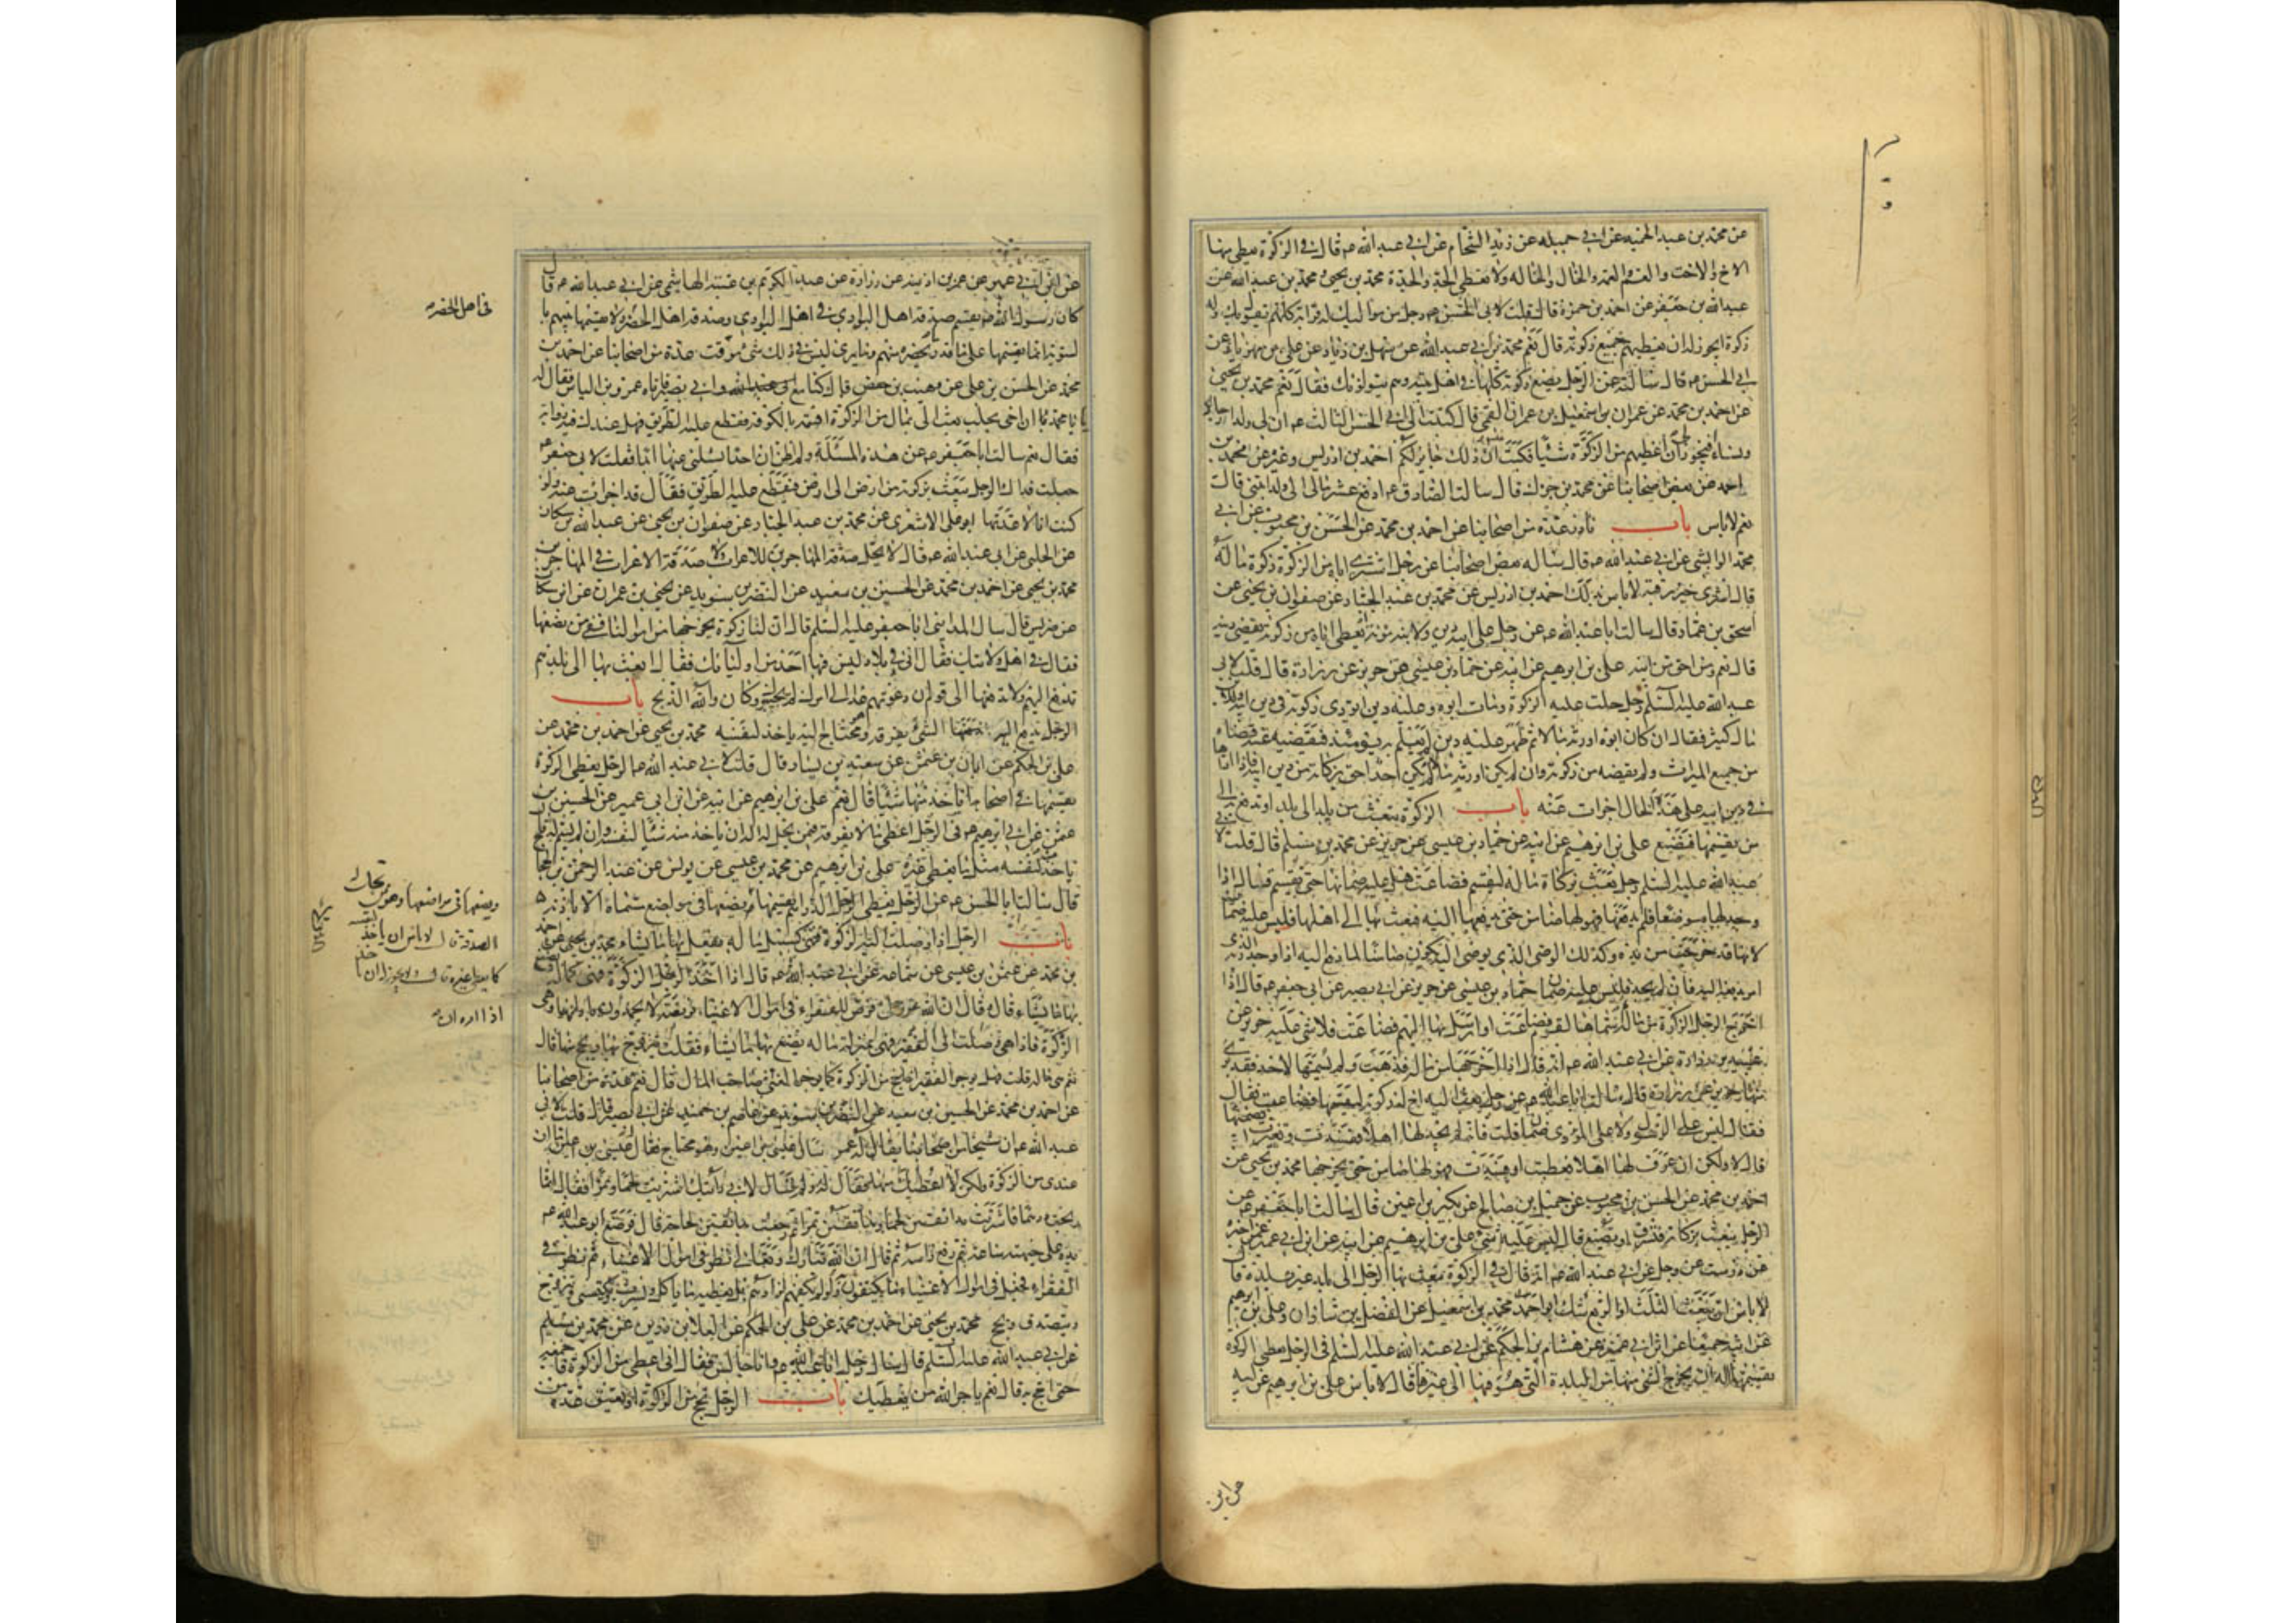 عن محمد بن عبد الحميد عن ابي جميله عن زيد الشحام عن ابي عبد الله ع قال في الزكوة يعطى منها
الاخ والاخت والعم والعمه والخال والخاله ولا يعطى الجد والجدة محمد بن يحيى ومحمد بن عبد الله عن
عبد الله بن جعفر عن احمد بن حمزة قال قلت لابي الحسن ع رجل من مواليك له قرابة كلهم يقول بك وله
زكوة ايجوز له ان يعطيهم جميع زكوته قال نعم محمد بن ابي عبد الله عن سهل بن زياد عن علي بن مهزيار عن
ابي الحسن ع قال سالته عن الرجل يضع زكوته كلها في اهل بيته وهم يتولونك فقال نعم محمد بن يحيى
عن احمد بن محمد عن عمران بن اسمعيل بن عمران القمي قال كتبت الى ابي الحسن الثالث ع ان لي ولدا رجالا
ونساء فيجوز لي ان اعطيهم من الزكوة شيئا فكتب ان ذلك جايز لكم احمد بن ادريس وغيره عن محمد بن
احمد عن بعض اصحابنا عن محمد بن جزك قال سالت الصادق ع ادفع عشر مالي الى ولد ابنتي قال
نعم لاباس باب نادر عدة من اصحابنا عن احمد بن محمد عن الحسن بن محبوب عن ابي
محمد الوابشي عن ابي عبد الله ع قال ساله بعض اصحابنا عن رجل اشترى اباه من الزكوة زكوة ماله
قال اشترى خير رقبة لاباس بذلك احمد بن ادريس عن محمد بن عبد الجبار عن صفوان بن يحيى عن
اسحق بن عمار قال سالت ابا عبد الله ع عن رجل على ابيه دين ولابنه مؤنة ايعطى اباه من زكوته يقضى دينه
قال نعم ومن احق من ابيه علي بن ابرهيم عن ابيه عن حماد بن عيسى عن حريز عن زرارة قال قلت لابي
عبد الله عليه السلم رجل حلت عليه الزكوة ومات ابوه وعليه دين ايؤدى زكوته في دين ابيه وللابن
مال كثير فقال ان كان ابوه اورثه مالا ثم ظهر عليه دين لم يعلم به يومئذ فيقضيه عنه قضاه
من جميع الميراث ولم يقضه من زكوته وان لم يكن اورثه مالا لم يكن احد احق بزكاته من دين ابيه فاذا اداها
في دين ابيه على هذه الحال اجزات عنه باب الزكوة تبعث من بلد الى بلد او تدفع الى
من يقسمها فتضيع علي بن ابرهيم عن ابيه عن حماد بن عيسى عن حريز عن محمد بن مسلم قال قلت لابي
عبد الله عليه السلم رجل بعث بزكاة ماله لتقسم فضاعت هل عليه ضمانها حتى تقسم فقال اذا
وجد لها موضعا فلم يدفعها فهو لها ضامن حتى يدفعها اليه فبعث بها الى اهلها فليس عليه ضمان
لانها قد خرجت من يده وكذلك الوصي الذي يوصى اليه يكون ضامنا لما دفع اليه اذا وجد ربه الذي
امر بدفعه اليه فان لم يجد فليس عليه ضمان حماد بن عيسى عن حريز عن ابي بصير عن ابي جعفر ع قال اذا
اخرج الرجل الزكوة من ماله ثم سماها لقوم فضاعت او ارسل بها اليهم فضاعت فلا شي عليه حريز عن
عبيد بن زرارة عن ابي عبد الله ع انه قال اذا اخرجها من ماله فذهبت ولم يسمها لاحد فقد بري
منها حريز عن زرارة قال سالت ابا عبد الله ع عن رجل بعث اليه اخ له زكوته ليقسمها فضاعت فقال
فقال ليس على الرسول ولا على المؤدي ضمان قلت فانه لم يجد لها اهلا ففسدت وتغيرت ايضمنها
قال لا ولكن ان عرف لها اهلا فعطبت او فسدت فهو لها ضامن حتى يخرجها محمد بن يحيى عن
احمد بن محمد عن الحسن بن محبوب عن جميل بن صالح عن بكير بن اعين قال سالت ابا جعفر ع عن
الرجل يبعث بزكاته فتسرق او تضيع قال ليس عليه شي علي بن ابرهيم عن ابيه عن ابن ابي عمير عمن اخبره
عن درست عن رجل عن ابي عبد الله ع انه قال في الزكوة يبعث بها الرجل الى بلد غير بلده قال
لاباس ان يبعث الثلث او الربع شك ابو احمد محمد بن اسمعيل عن الفضل بن شاذان وعلي بن ابرهيم
عن ابيه جميعا عن ابن ابي عمير عن هشام بن الحكم عن ابي عبد الله عليه السلم في الرجل يعطى الزكوة
يقسمها اله ان يخرج الشي منها من البلدة التي هو فيها الى غيرها قال لا باس علي بن ابرهيم عن ابيه
عن ابن
في اهل الحضر
عن ابن ابي عمير عن عمر بن اذينه عن زرارة عن عبد الكريم بن عتبه الهاشمي عن ابي عبد الله ع قال
كان رسول الله ص يقسم صدقة اهل البوادي في اهل البوادي وصدقة اهل الحضر ولا يقسمها بينهم با
لسوية انما يقسمها على ما قدر يحضره منهم وما يرى ليس في ذلك شي موقت عدة من اصحابنا عن احمد بن
محمد عن الحسن بن علي عن وهيب بن حفص قال كنا مع ابي بصير فاتاه عمرو بن الياس فقال له
يا با محمد ان اخي بحلب بعث الي بمال من الزكوة اقسمه بالكوفة فقطع عليه الطريق فهل عندك فيه رواية
فقال نعم سالت ابا جعفر ع عن هذه المسئلة ولم اظن ان احدا يسلني عنها ابدا فقلت لابي جعفر ع
جعلت فداك الرجل يبعث بزكوته من ارض الى ارض فيقطع عليه الطريق فقال قد اجزات عنه ولو
كنت انا لاعدتها ابو علي الاشعري عن محمد بن عبد الجبار عن صفوان بن يحيى عن عبد الله بن مسكان
عن الحلبي عن ابي عبد الله ع قال لا يحل صدقة المهاجرين للاعراب ولا صدقة الاعراب في المهاجرين
محمد بن يحيى عن احمد بن محمد عن الحسين بن سعيد عن النضر بن سويد عن يحيى بن عمران عن ابن مسكان
عن ضريس قال سال المدايني ابا جعفر عليه السلم قال ان لنا زكوة نخرجها من اموالنا ففي من نضعها
فقال في اهل ولايتك فقال اني في بلاد ليس فيها احد من اوليائك فقال ابعث بها الى بلدهم
تدفع اليهم ولا تدفعها الى قوم ان دعوتهم غدا الى امرك لم يجيبوك وكان والله الذبح باب
الرجل يدفع اليه الشي يفرقه وهو محتاج اليه ياخذ لنفسه محمد بن يحيى عن احمد بن محمد عن
علي بن الحكم عن ابان بن عثمن عن سعيد بن يسار قال قلت لابي عبد الله ع الرجل يعطى الزكوة
يقسمها في اصحابه اياخذ منها شيئا قال نعم علي بن ابرهيم عن ابيه عن ابن ابي عمير عن الحسين بن
عثمن عن ابي ابرهيم ع في الرجل اعطي مالا يفرقه فيمن يحل له اله ان ياخذ منه شيئا لنفسه وان لم يسم له قال
ياخذ لنفسه مثل ما يعطى غيره علي بن ابرهيم عن محمد بن عيسى عن يونس عن عبد الرحمن بن الحجاج
قال سالت ابا الحسن ع عن الرجل يعطي الرجل الدراهم يقسمها ويضعها في مواضع سماه الا باذنه
باب الرجل اذا وصلت اليه الزكوة فهي كسبيل ماله يفعل بها ما يشاء محمد بن يحيى عن احمد
بن محمد عن عثمن بن عيسى عن سماعه عن ابي عبد الله ع قال اذا اخذ الرجل الزكوة فهي كماله يصنع
بها ما يشاء قال وقال ان الله عز وجل فرض للفقراء في اموال الاغنياء فريضة لا يحمدون الا بادائها وهي
الزكوة فاذا هي وصلت الى الفقير فهي بمنزلة ماله يصنع بها ما يشاء فقلت يتزوج بها ويحج منها قال
نعم هي ماله قلت فهل يوجر الفقير اذا حج من الزكوة كما يوجر الغني صاحب المال قال نعم عدة من اصحابنا
عن احمد بن محمد عن الحسين بن سعيد عن النضر بن سويد عن عاصم بن حميد عن ابي بصير قال قلت لابي
عبد الله ع ان شيخا من اصحابنا يقال له عمر سال عيسى بن اعين وهو محتاج فقال له عيسى بن اعين اما ان
عندي من الزكوة ولكن لا اعطيك منها فقال له ولم فقال لاني رايتك اشتريت لحما وتمرا فقال انما
ربحت درهما فاشتريت بدانقين لحما وبدانقين تمرا ثم رجعت بدانقين لحاجة قال فوضع ابو عبد الله ع
يده على جبهته ساعة ثم رفع راسه ثم قال ان الله تبارك وتعالى نظر في اموال الاغنياء ثم نظر في
الفقراء فجعل في اموال الاغنياء ما يكتفون به ولو لم يكفهم لزادهم بلى يعطيه ما ياكل ويشرب ويكتسي ويتزوج
ويتصدق ويحج محمد بن يحيى عن احمد بن محمد عن علي بن الحكم عن العلا بن رزين عن محمد بن مسلم
عن ابي عبد الله عليه السلم قال سال رجل ابا عبد الله ع وانا جالس فقال اني اعطى من الزكوة فاجمعه
حتى احج به قال نعم ياجر الله من يعطيك باب الرجل يحج من الزكوة او يعتق عدة من
ويضعها في مواضعها وهو ممن تحل له
الصدقة قال لا باس ان ياخذ لنفسه
كما يعطي غيره قال ولا يجوز له ان ياخذ
اذا امره ان